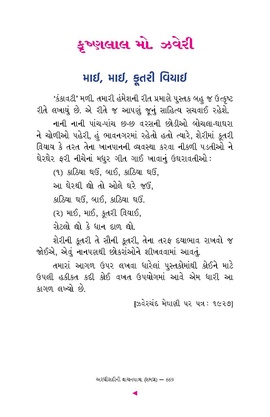 કૃષ્ણલાલ મો. ઝવેરી
માઇ, માઇ, કૂતરી વિયાઇ
‘કંકાવટી’ મળી. તમારી હંમેશની રીત પ્રમાણે પુસ્તક બહુ જ ઉત્કૃષ્ટ
રીતે લખાયું છે. એ રીતે જ આપણું જૂનું સાહિત્ય સચવાઈ રહેશે.
નાની નાની પાંચ-પાંચ છ-છ વરસની છોડીઓ બોયલા-ઘાઘરા
ને ચોળીઓ પહેરી, હું ભાવનગરમાં રહેતો હતો ત્યારે, શેરીમાં કૂતરી
વિયાય કે તરત તેના ખાનપાનની વ્યવસ્થા કરવા નીકળી પડતીઓ ને
ઘેરઘેર ફરી નીચેનાં મધુર ગીત ગાઈ ખાવાનું ઉઘરાવતીઓ :
(૧) કાઠિયા ઘઉં, બાઈ, કાઠિયા ઘઉં,
આ ઘેરથી લ્યો તો ઓલે ઘરે જઉં,
કાઠિયા ઘઉં, બાઈ, કાઠિયા ઘઉં.
(૨) માઇ, માઇ, કૂતરી વિયાઇ,
રોટલો લ્યો કે ધાન દાળ લ્યો.
શેરીની કૂતરી તે સૌની કૂતરી, તેના તરફ દયાભાવ રાખવો જ
જોઈએ, એવું નાનપણથી છોકરાંઓને શીખવવામાં આવતું.
તમારાં આગળ ઉપર લખવા ધારેલાં પુસ્તકોમાંથી કોઈને માટે
ઉપલી હકીકત કદી કોઈ વખત ઉપયોગમાં આવે એમ ધારી આ
કાગળ લખ્યો છે.
[ઝવેરચંદ મેઘાણી પર પત્ર : ૧૯૨૭]
— 669